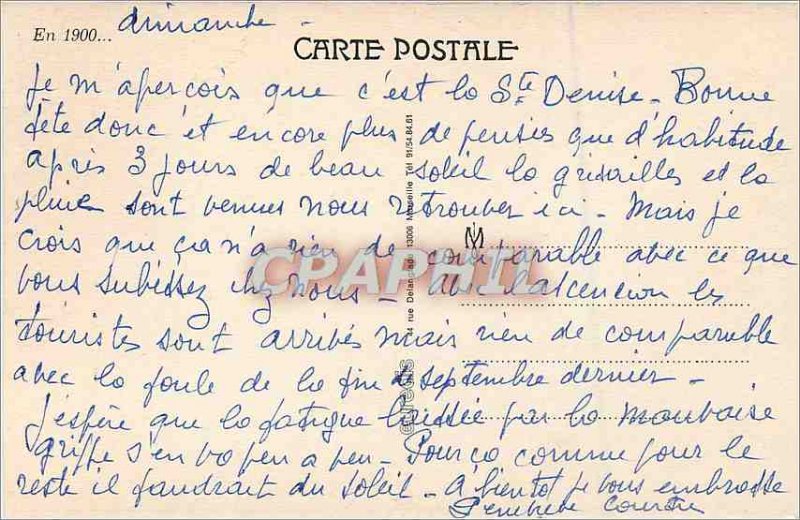 dimanche -
En 1900...
CARTE POSTALE
Je m'aperçois que c'est la Ste Denise - Bonne
fête donc et encore plus de pensées que d'habitude
après 3 jours de beau soleil la grisailles et la
pluie sont venues nous retrouver ici - Mais je
crois que ça n'a rien de comparable avec ce que
vous subissez chez nous - avec l'ascencion les
touristes sont arrivés mais rien de comparable
avec la foule de la fin de septembre dernier -
J'espère que la fatigue laissée par la mauvaise
grippe s'en va peu a peu - Pour ça comme pour le
reste il faudrait du soleil - A bientôt je vous embrasse
44 rue Delanglade 13006 Marseille Tél 91/54.84.61
CPAPHIL